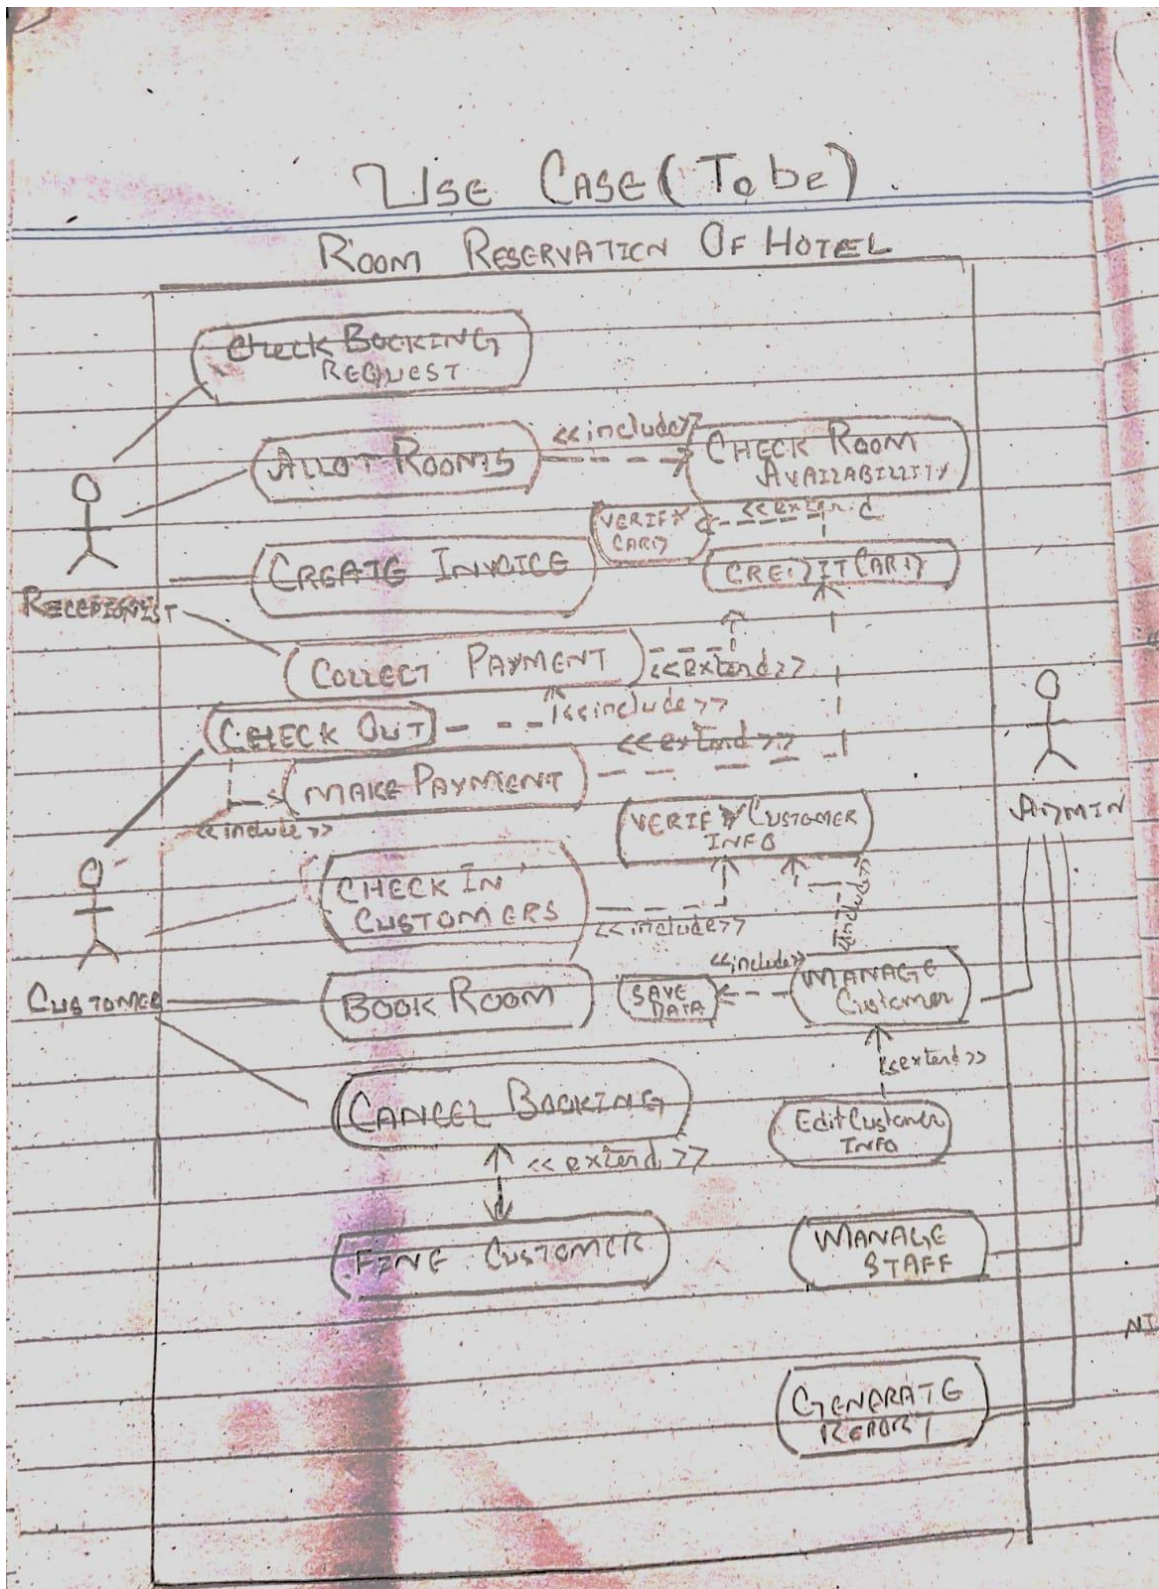 USE CASE (To be).
ROOM RESERVATION OF HOTEL
CHECK BOOKING
REQUEST
ALLOT ROOMS
<<include>>
CHECK ROOM
AVAILABILLITY
VERIFY
CARD
<<extend
CREATE INVOICE
CREDIT CARD
RECEPIONIST
COLLECT PAYMENT
<<extend>>
<<include>>
CHECK OUT
<<extend>>
MAKE PAYMENT
<<include>>
VERIFY CUSTOMER
INFO
ADMIN
CHECK IN
CUSTOMERS
<<include>>
<<include>>
<<include>>
CUSTOMER
BOOK ROOM
SAVE
DATA
MANAGE
Customer
<<extend>>
CANCEL BOOKING
Edit Customer
INFO
<<extend>>
FINE CUSTOMER
MANAGE
STAFF
NI
GENERATE
REPORT